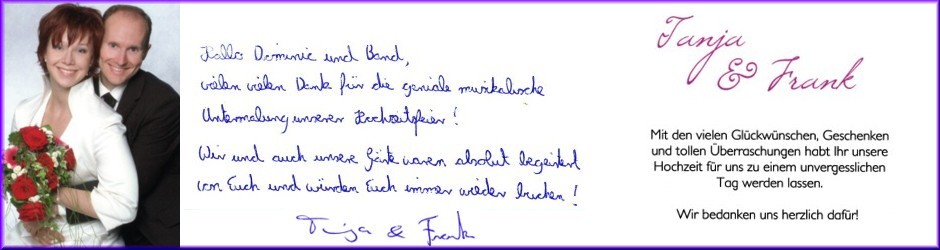 Hallo Dominic und Band,
vielen vielen Dank für die geniale musikalische
Untermalung unserer Hochzeitsfeier!
Wir und auch unsere Gäste waren absolut begeistert
von Euch und würden Euch immer wieder buchen!
Tanja & Frank
Tanja
& Frank
Mit den vielen Glückwünschen, Geschenken
und tollen Überraschungen habt Ihr unsere
Hochzeit für uns zu einem unvergesslichen
Tag werden lassen.
Wir bedanken uns herzlich dafür!